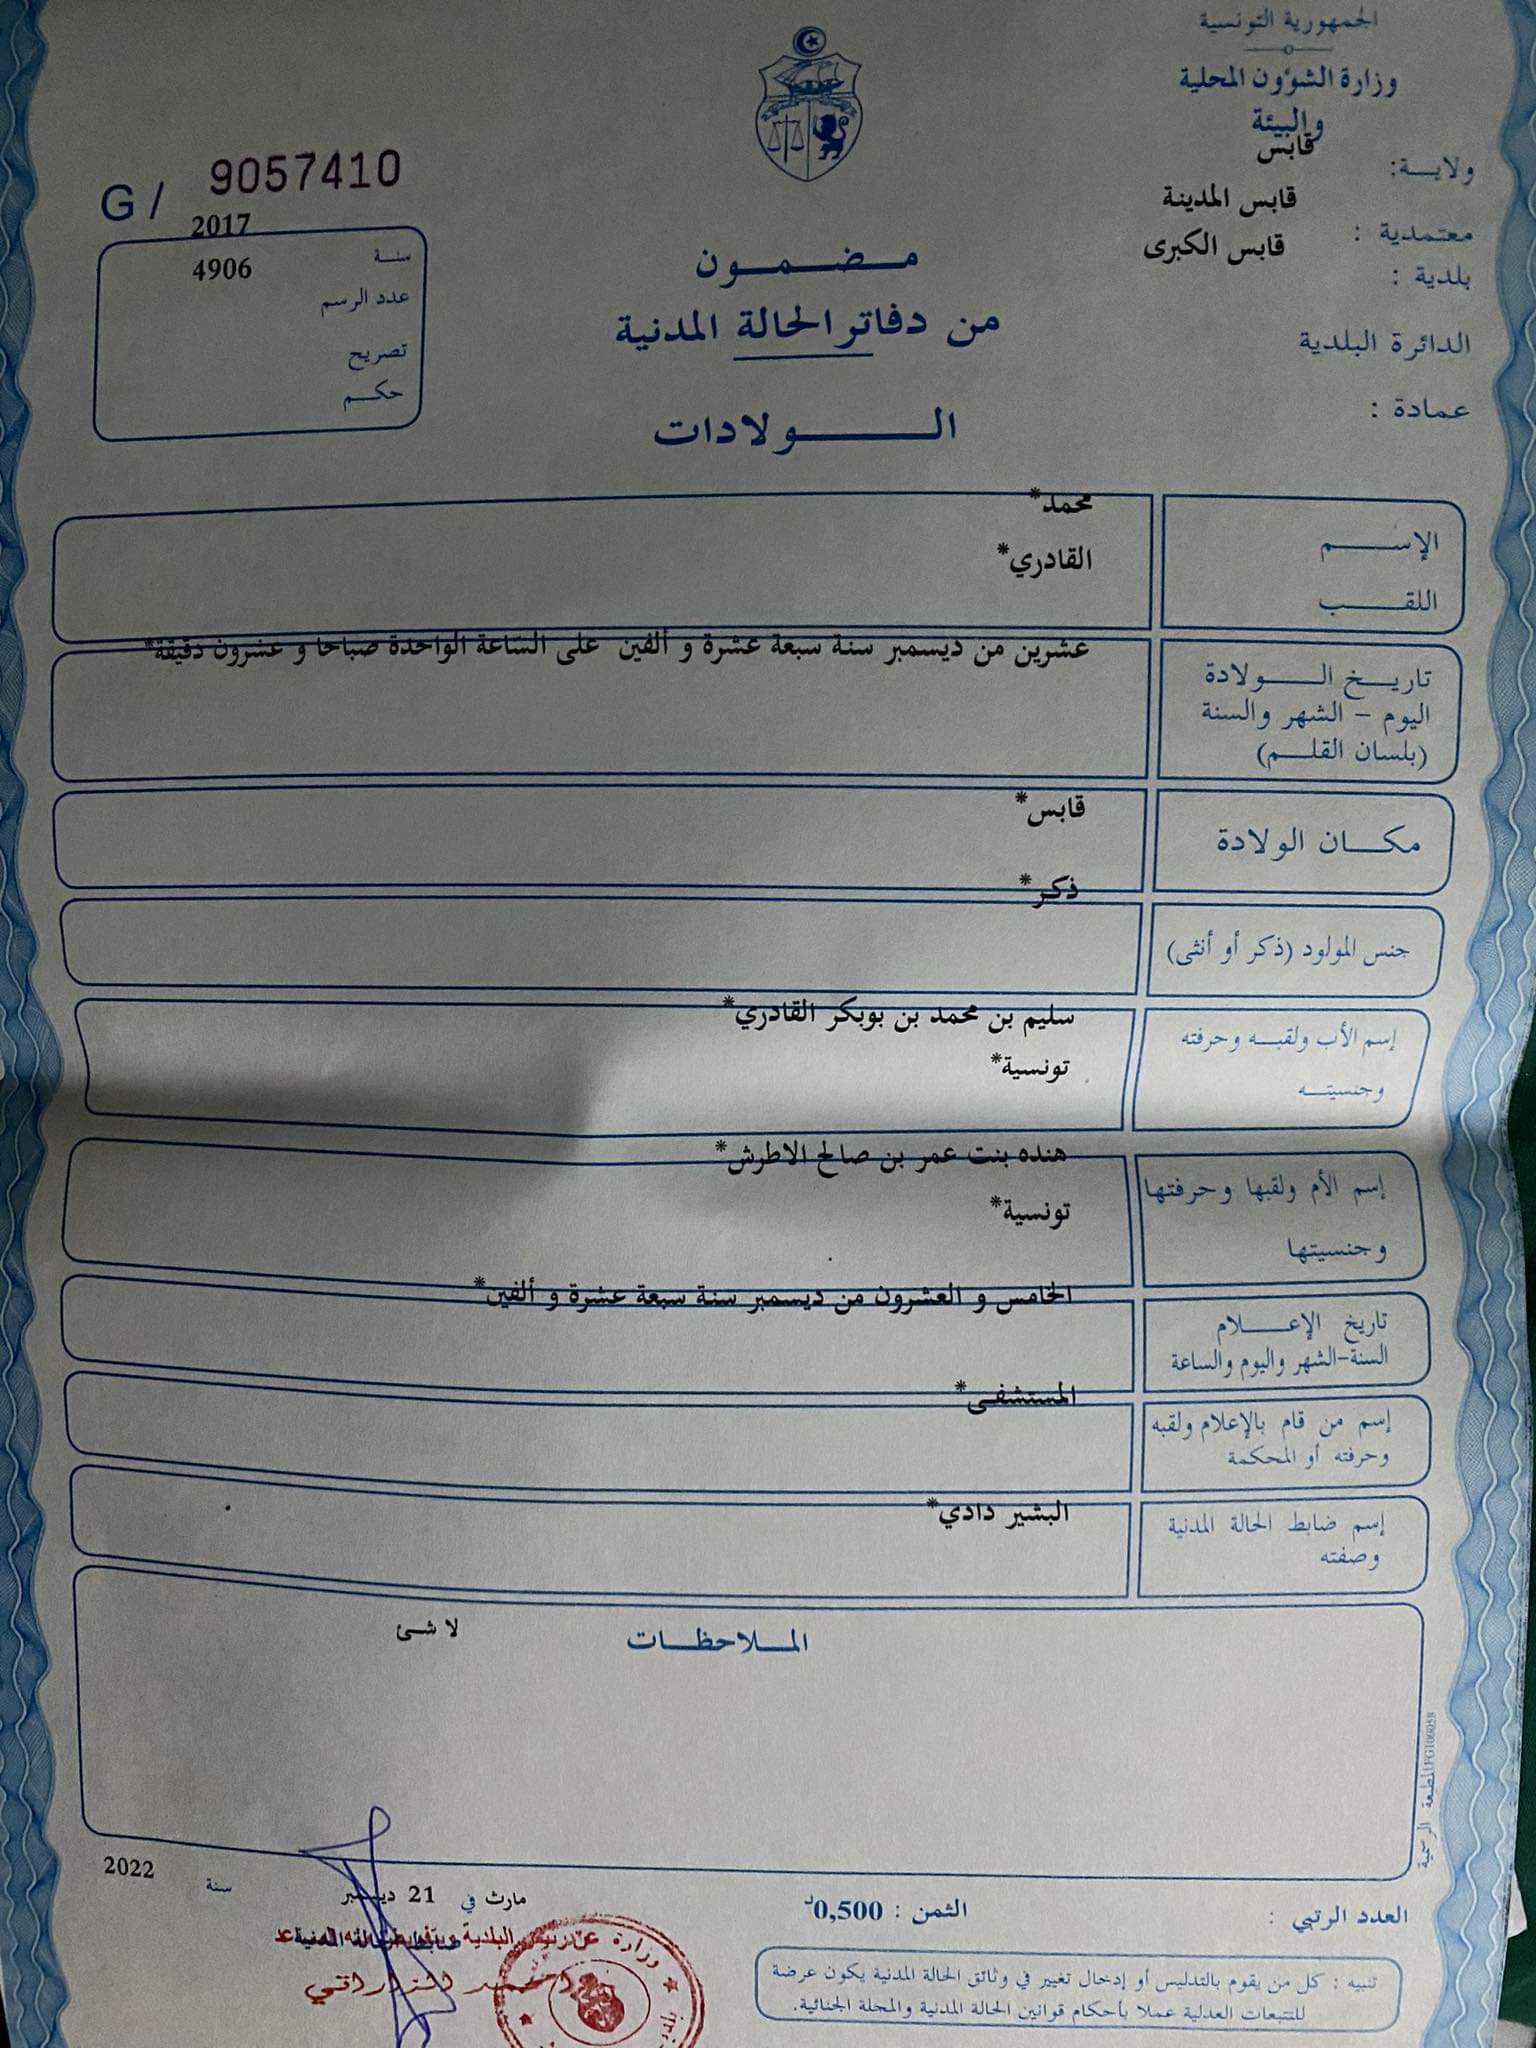 الجمهورية التونسية
وزارة الشؤون المحلية
والبيئة
ولاية: قابس
معتمدية : قابس المدينة
بلدية : قابس الكبرى
الدائرة البلدية
عمادة :
G / 9057410
سنة 2017
عدد الرسم 4906
تصريح
حكم
مضمون
من دفاتر الحالة المدنية
الولادات
الإسم محمد*
اللقب القادري*
تاريخ الولادة
اليوم – الشهر والسنة
(بلسان القلم)
عشرين من ديسمبر سنة سبعة عشرة و ألفين على الساعة الواحدة صباحا و عشرون دقيقة*
مكان الولادة قابس*
جنس المولود (ذكر أو أنثى) ذكر*
إسم الأب ولقبه وحرفته سليم بن محمد بن بوبكر القادري*
وجنسيته تونسية*
إسم الأم ولقبها وحرفتها هنده بنت عمر بن صالح الاطرش*
وجنسيتها تونسية*
تاريخ الإعلام
السنة-الشهر واليوم والساعة
الخامس و العشرون من ديسمبر سنة سبعة عشرة و ألفين*
إسم من قام بالإعلام ولقبه
وحرفته أو المحكمة
المستشفى*
إسم ضابط الحالة المدنية
وصفته
البشير دادي*
الملاحظات لا شئ
المطبعة الرسمية
العدد الرتبي :
الثمن : 0,500د
مارث في 21 ديسمبر سنة 2022
ضابط الحالة المدنية
وزارة
تنبيه : كل من يقوم بالتدليس أو إدخال تغيير في وثائق الحالة المدنية يكون عرضة
للتتبعات العدلية عملا بأحكام قوانين الحالة المدنية والمجلة الجنائية.